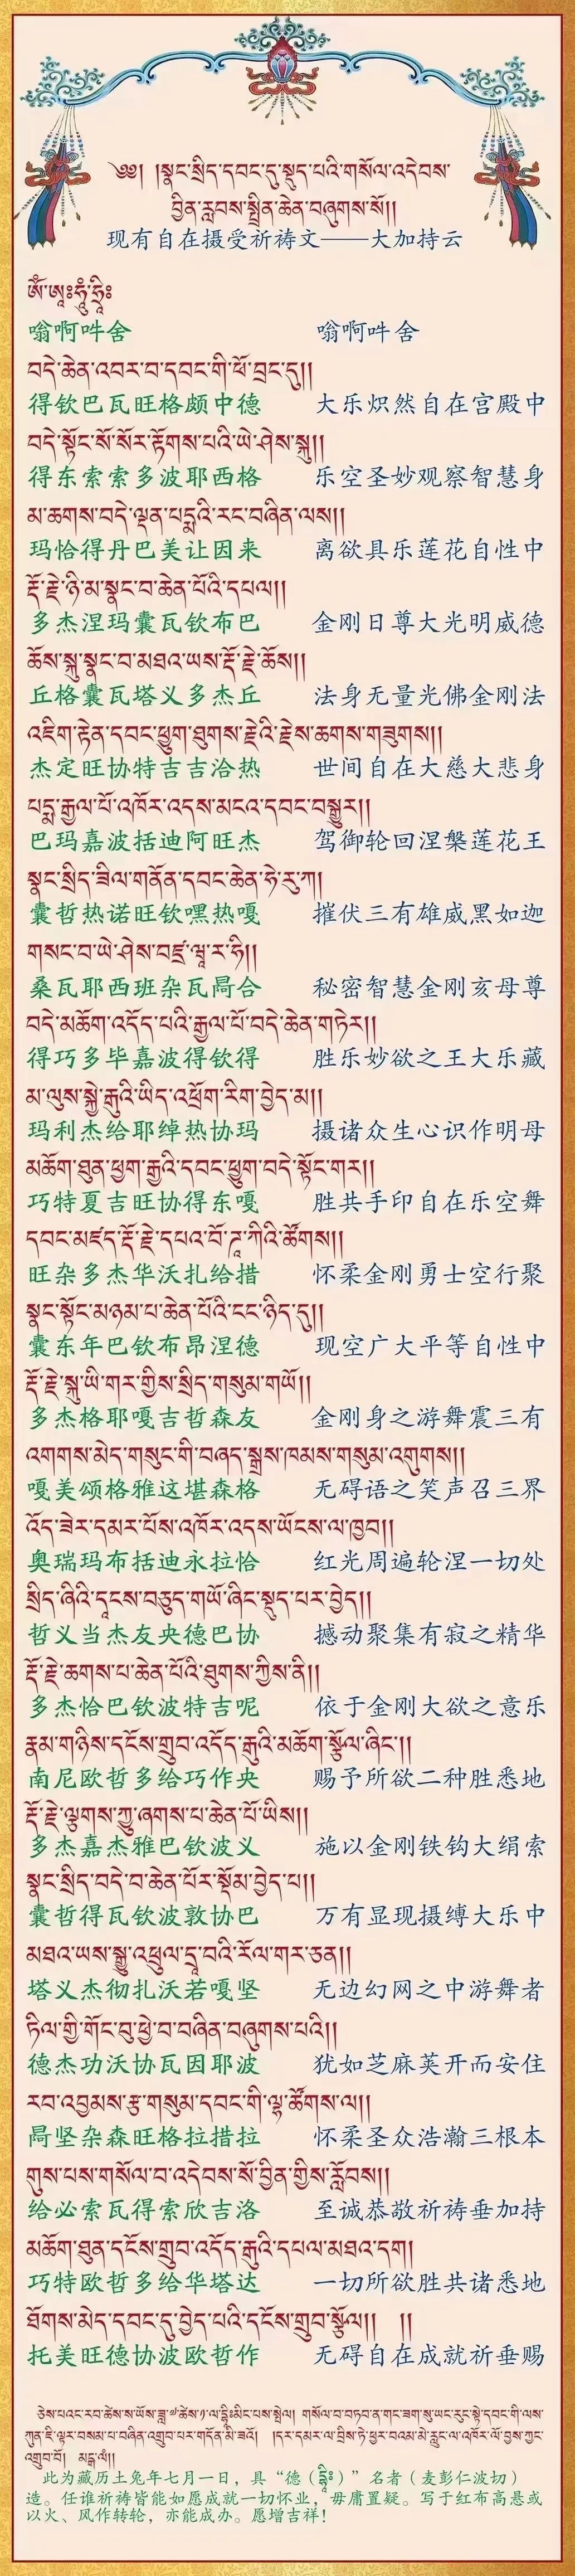 ༄༅། །སྣང་སྲིད་དབང་དུ་སྡུད་པའི་གསོལ་འདེབས་
བྱིན་རླབས་སྤྲིན་ཆེན་བཞུགས་སོ།།
现有自在摄受祈祷文——大加持云
ཨོཾ་ཨཱཿཧཱུྂ་ཧྲཱིཿ
嗡啊吽舍 嗡啊吽舍
བདེ་ཆེན་འབར་བ་དབང་གི་ཕོ་བྲང་དུ།།
得钦巴瓦旺格颇中德 大乐炽然自在宫殿中
བདེ་སྟོང་སོ་སོར་རྟོགས་པའི་ཡེ་ཤེས་སྐུ།།
得东索索多波耶西格 乐空圣妙观察智慧身
མ་ཆགས་བདེ་ལྡན་པདྨའི་རང་བཞིན་ལས།།
玛恰得丹巴美让因来 离欲具乐莲花自性中
རྡོ་རྗེ་ཉི་མ་སྣང་བ་ཆེན་པོའི་དཔལ།།
多杰涅玛囊瓦钦布巴 金刚日尊大光明威德
ཆོས་སྐུ་སྣང་བ་མཐའ་ཡས་རྡོ་རྗེ་ཆོས།།
丘格囊瓦塔义多杰丘 法身无量光佛金刚法
འཇིག་རྟེན་དབང་ཕྱུག་ཐུགས་རྗེའི་རྗེས་ཆགས་གཟུགས།།
杰定旺协特吉吉洽热 世间自在大慈大悲身
པདྨ་རྒྱལ་པོ་འཁོར་འདས་མངའ་དབང་བསྒྱུར།།
巴玛嘉波括迪阿旺杰 驾御轮回涅槃莲花王
སྣང་སྲིད་ཟིལ་གནོན་དབང་ཆེན་ཧེ་རུ་ཀ།
囊哲热诺旺钦嘿热嘎 摧伏三有雄威黑如迦
གསང་བ་ཡེ་ཤེས་བཛྲ་ཝཱ་ར་ཧི།།
桑瓦耶西班杂瓦咼合 秘密智慧金刚亥母尊
བདེ་མཆོག་འདོད་པའི་རྒྱལ་པོ་བདེ་ཆེན་གཏེར།།
得巧多毕嘉波得钦得 胜乐妙欲之王大乐藏
མ་ལུས་སྐྱེ་རྒུའི་ཡིད་འཕྲོག་རིག་བྱེད་མ།།
玛利杰给耶绰热协玛 摄诸众生心识作明母
མཆོག་ཐུན་ཕྱག་རྒྱའི་དབང་ཕྱུག་བདེ་སྟོང་གར།།
巧特夏吉旺协得东嘎 胜共手印自在乐空舞
དབང་མཛད་རྡོ་རྗེ་དཔའ་བོ་ཌཱ་ཀིའི་ཚོགས།།
旺杂多杰华沃扎给措 怀柔金刚勇士空行聚
སྣང་སྟོང་མཉམ་པ་ཆེན་པོའི་ངང་ཉིད་དུ།།
囊东年巴钦布昂涅德 现空广大平等自性中
རྡོ་རྗེ་སྐུ་ཡི་གར་གྱིས་སྲིད་གསུམ་གཡོ།།
多杰格耶嘎吉哲森友 金刚身之游舞震三有
འགགས་མེད་གསུང་གི་བཞད་སྒྲས་ཁམས་གསུམ་འགུགས།།
嘎美颂格雅这堪森格 无碍语之笑声召三界
འོད་ཟེར་དམར་པོས་འཁོར་འདས་ཡོངས་ལ་ཁྱབ།།
奥瑞玛布括迪永拉恰 红光周遍轮涅一切处
སྲིད་ཞིའི་དྭངས་བཅུད་གཡོ་ཞིང་སྡུད་པར་བྱེད།།
哲义当杰友央德巴协 撼动聚集有寂之精华
རྡོ་རྗེ་ཆགས་པ་ཆེན་པོའི་ཐུགས་ཀྱིས་ནི།།
多杰恰巴钦波特吉呢 依于金刚大欲之意乐
རྣམ་གཉིས་དངོས་གྲུབ་འདོད་རྒུའི་མཆོག་སྩོལ་ཞིང་།།
南尼欧哲多给巧作央 赐予所欲二种胜悉地
རྡོ་རྗེ་ལྕུགས་ཀྱུ་ཞགས་པ་ཆེན་པོ་ཡིས།།
多杰嘉杰雅巴钦波义 施以金刚铁钩大绢索
སྣང་སྲིད་བདེ་བ་ཆེན་པོར་སྡོམ་བྱེད་པ།།
囊哲得瓦钦波敦协巴 万有显现摄缚大乐中
མཐའ་ཡས་སྒྱུ་འཕྲུལ་དྲྭ་བའི་རོལ་གར་ཅན།།
塔义杰彻扎沃若嘎坚 无边幻网之中游舞者
ཏིལ་གྱི་གོང་བུ་ཕྱེ་བ་བཞིན་བཞུགས་པའི།།
德杰功沃协瓦因耶波 犹如芝麻荚开而安住
རབ་འབྱམས་རྩ་གསུམ་དབང་གི་ལྷ་ཚོགས་ལ།།
咼坚杂森旺格拉措拉 怀柔圣众浩瀚三根本
གུས་པས་གསོལ་བ་འདེབས་སོ་བྱིན་གྱིས་རློབས།།
给必索瓦得索欣吉洛 至诚恭敬祈祷垂加持
མཆོག་ཐུན་དངོས་གྲུབ་འདོད་རྒུའི་དཔལ་མཐའ་དག།
巧特欧哲多给华塔达 一切所欲胜共诸悉地
ཐོགས་མེད་དབང་དུ་བྱེད་པའི་དངོས་གྲུབ་སྩོལ།། །།
托美旺德协波欧哲作 无碍自在成就祈垂赐
ཅེས་པའང་རབ་ཚེས་ས་ཡོས་ཟླ་༧་ཚེས་༡་ལ་དྷཱིཿམིང་པས་སྤེལ། གསོལ་བ་བཏབ་ན་གང་ཟག་སུ་ཡང་རུང་སྟེ་དབང་གི་ལས་
ཀུན་ཇི་ལྟར་བསམ་པ་བཞིན་འགྲུབ་པར་གདོན་མི་ཟའོ། །དར་དམར་ལ་བྲིས་ཏེ་ཕྱར་བའམ་མེ་རླུང་ལ་འཁོར་ལོ་བྱས་ཀྱང་
འགྲུབ་བོ། མངྒ་ལཾ།།
此为藏历土兔年七月一日，具“德（དྷཱིཿ）”名者（麦彭仁波切）
造。任谁祈祷皆能如愿成就一切怀业，毋庸置疑。写于红布高悬或
以火、风作转轮，亦能成办。愿增吉祥！